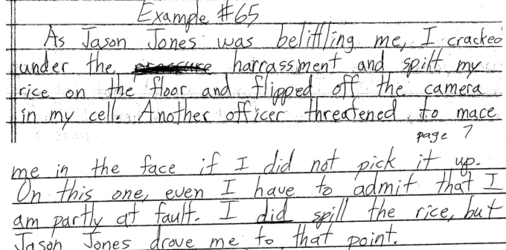 Example #65
As Jason Jones was belittling me, I cracked
under the, harrassment and spilt my
rice on the floor and flipped off the camera
in my cell. Another officer threatened to mace
page 7
me in the face if I did not pick it up.
On this one, even I have to admit that I
am partly at fault. I did spill the rice, but
Jason Jones drove me to that point.